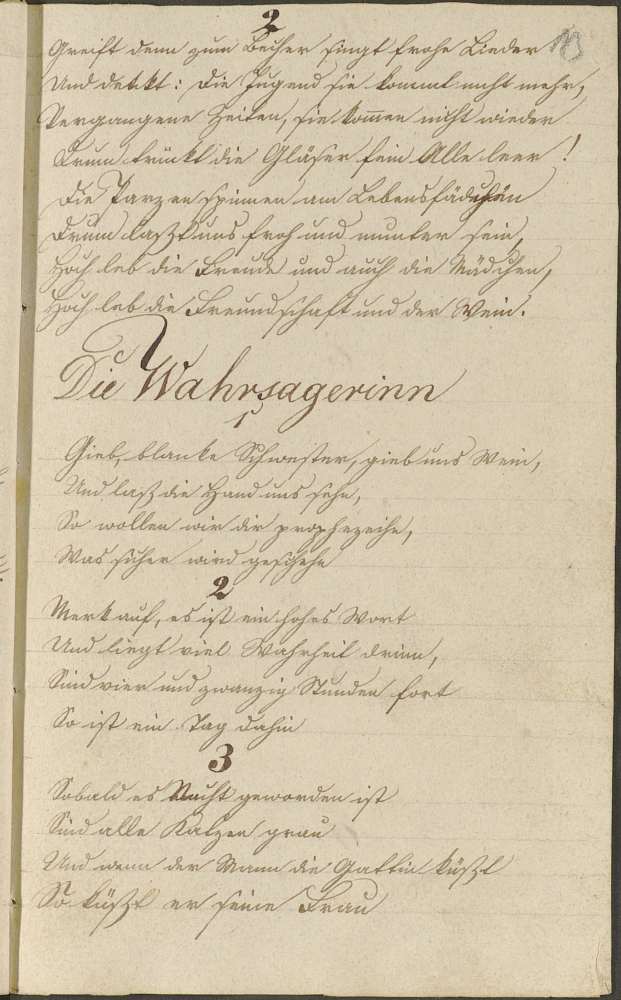 2
13
Greift denn zum Becher singt frohe Lieder
Und denkt: die Jugend sie kommt nicht mehr,
Vergangene Zeiten, sie kom̄en nicht wieder
Drum trinkt die Gläser fein Alle leer!
Die Parzen spinnen am Lebensfädchen
Drum laszt uns froh und munter sein,
Hoch leb die Freude und auch die Mädchen,
Hoch leb die Freundschaft und der Wein.
Die Wahrsagerinn
1
Gieb, blanke Schwester, gieb uns Wein,
Und lasz die Hand uns sehn,
So wollen wir dir prophezeihn,
Was sicher wird geschehn
2
Merk auf, es ist ein hohes Wort
Und liegt viel Wahrheit drinn,
Sind vier und zwanzig Stunden fort
So ist ein Tag dahin
3
Sobald es Nacht geworden ist
Sind alle Katzen grau
Und wenn der Mann die Gattin küszt
So küszt er seine Frau